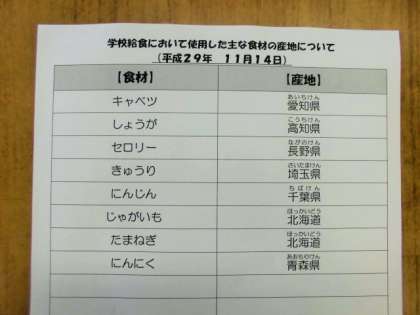 学校給食において使用した主な食材の産地について
(平成29年 11月14日)
【食材】 【産地】
キャベツ 愛知県 あいちけん
しょうが 高知県 こうちけん
セロリー 長野県 ながのけん
きゅうり 埼玉県 さいたまけん
にんじん 千葉県 ちばけん
じゃがいも 北海道 ほっかいどう
たまねぎ 北海道 ほっかいどう
にんにく 青森県 あおもりけん